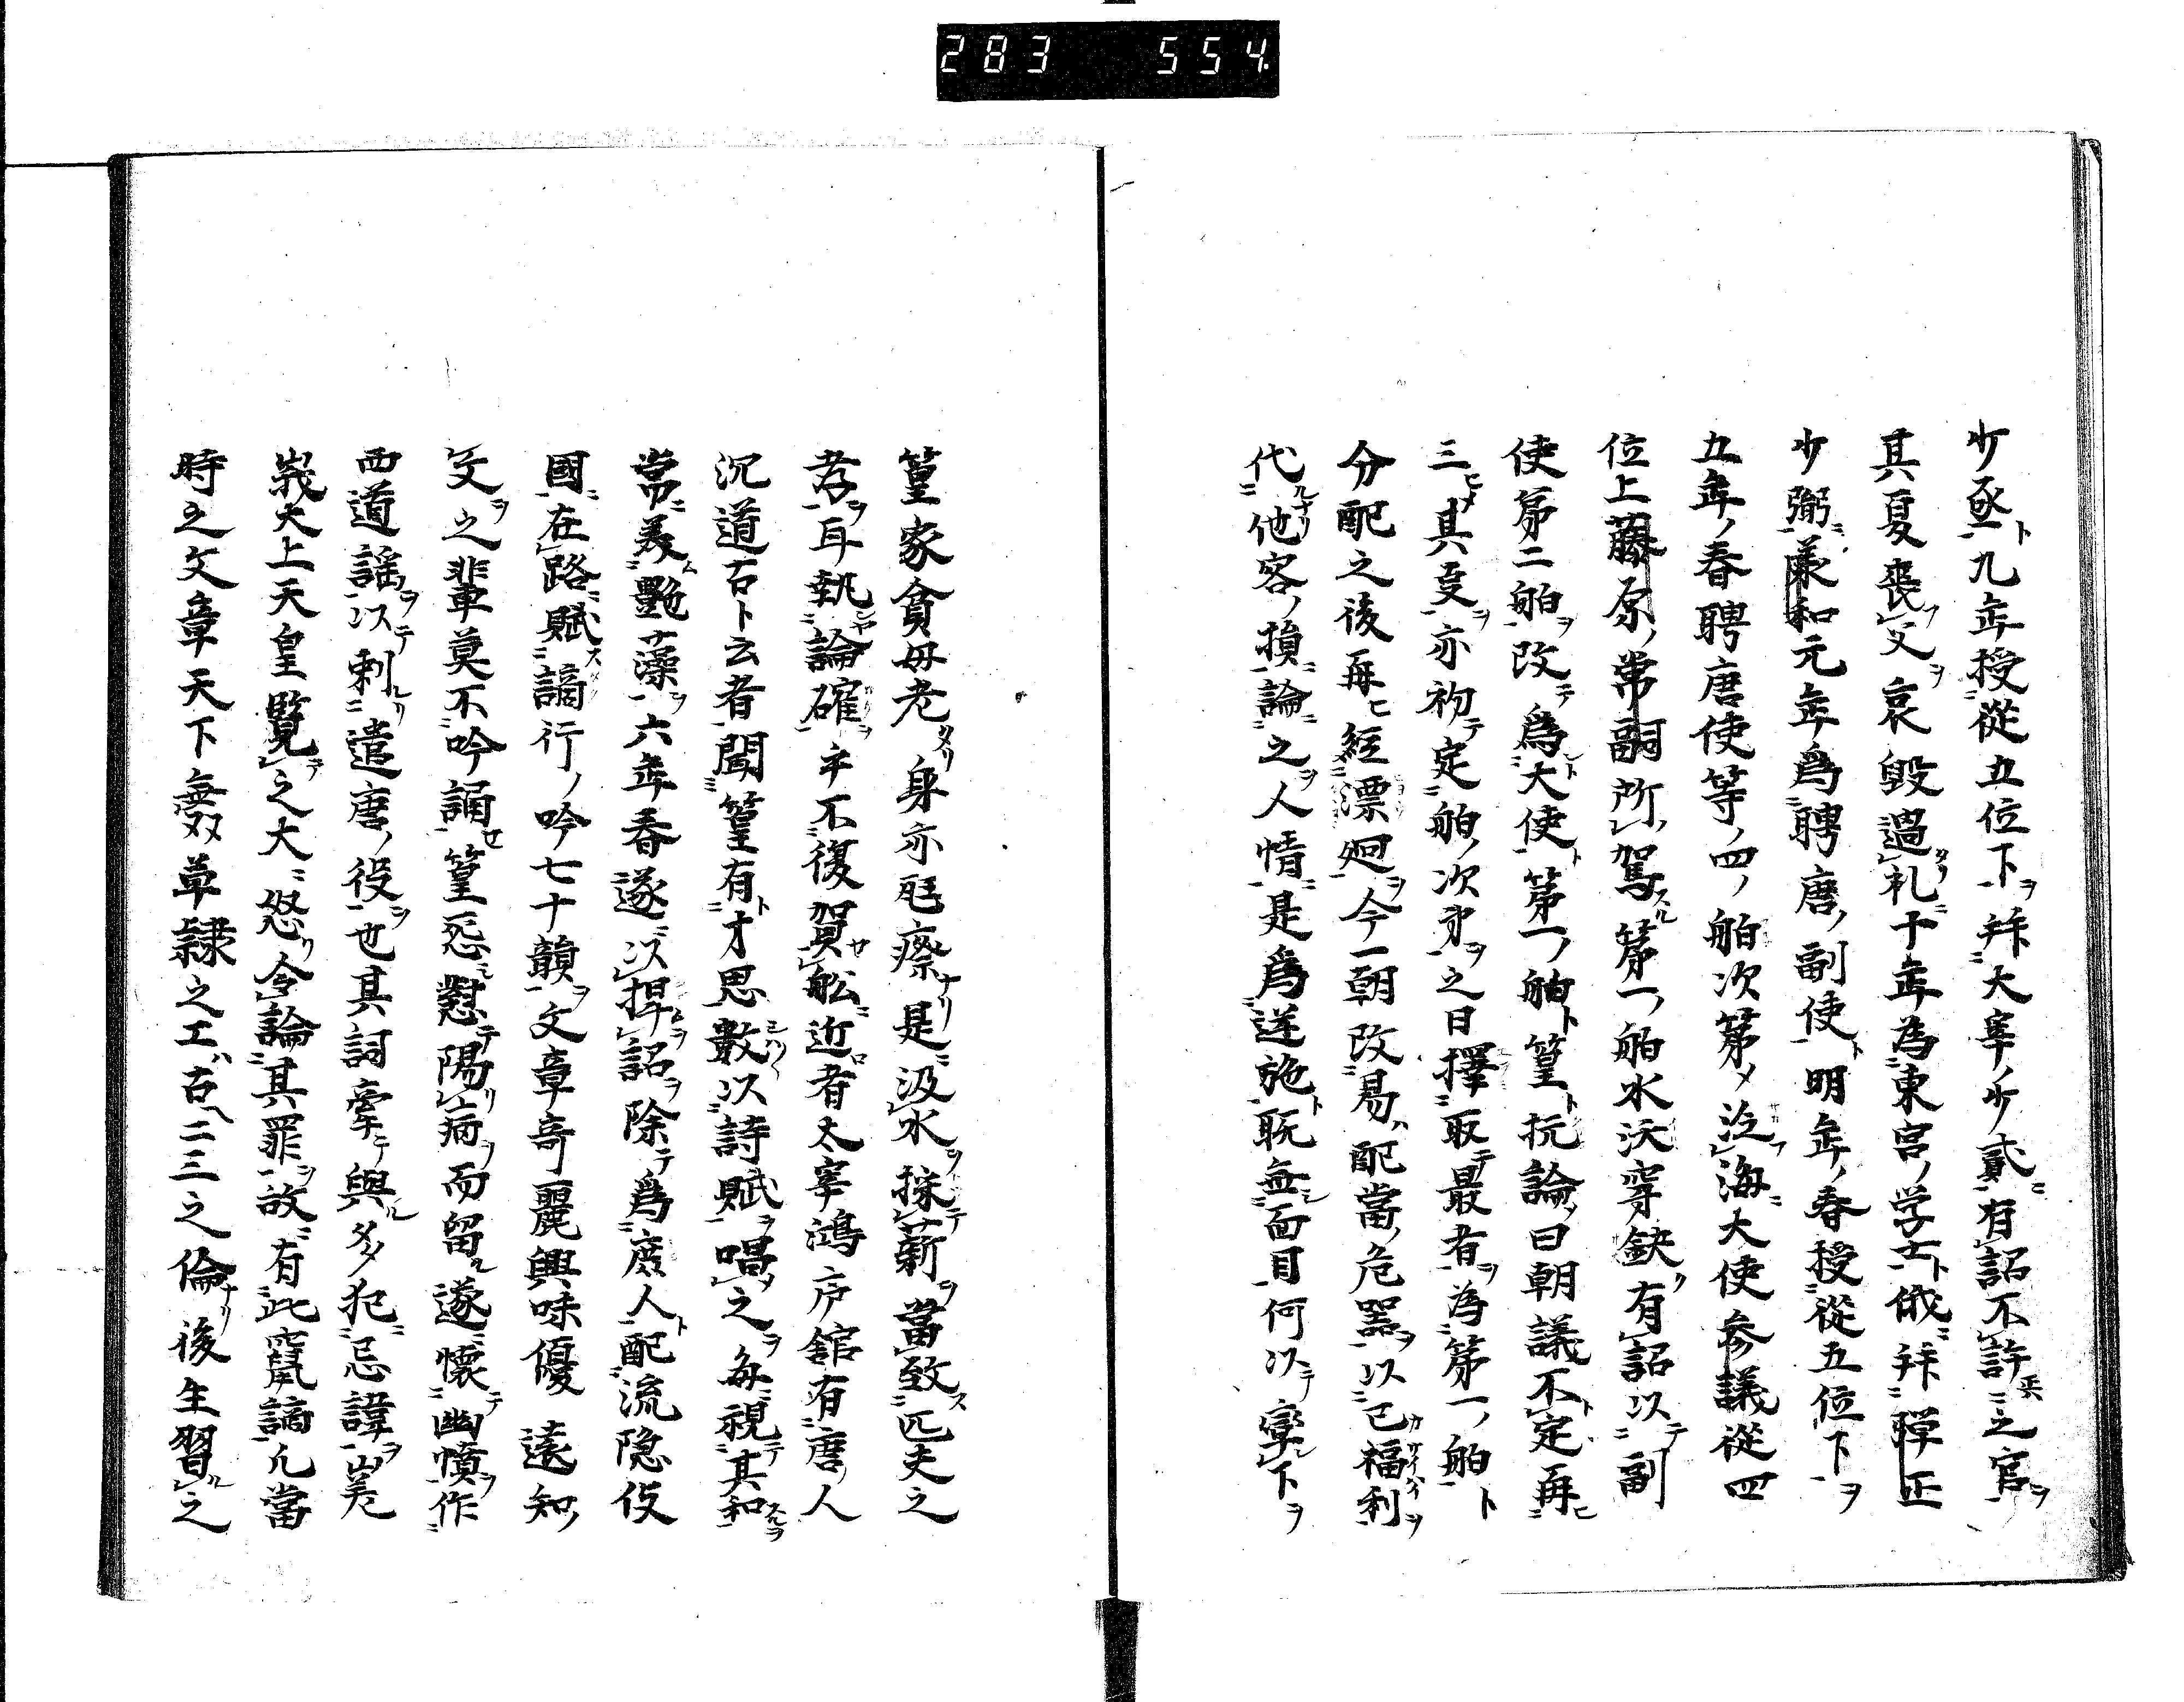 283 554
少丞九年授從五位下拜大宰少貳有詔不許之官
其夏喪父哀毀過礼十年為東宮学士俄拜弾正
少弼羕和元年爲聘唐副使明年春授從五位下
五年春聘唐使等四舶次第泛海大使参議從四
位上藤原常嗣所駕第一舶水沃穿缺有詔以副
使第二舶改爲大使第一舶篁抗論曰朝議不定再
三其㕝亦初定舶次第之日擇取最者為第一舶
分配之後再經漂廻今一朝改易配當危器以己福利
代他害損論之人情是爲逆施既無面目何以率下
篁家貧母老身亦尫瘵是汲水採薪當致匹夫之
孝耳執論確乎不復駕舩近者太宰鴻臚舘有唐人
沉道古ト云者聞篁有才思數以詩賦唱之毎視其和
常羨艶藻六年春遂以捍詔除爲庶人配流隐伎
國在路賦謫行吟七十韻文章奇麗興味優遠知
文之輩莫不吟誦篁怨懟陽病而留遂懷幽憤作
西道謡以刺遣唐役也其詞牽與多犯忌諱嵯
峩太上天皇覽之大怒令論其罪故有此竄謫凡當
時之文章天下無双草隷之工古二三之倫後生習之